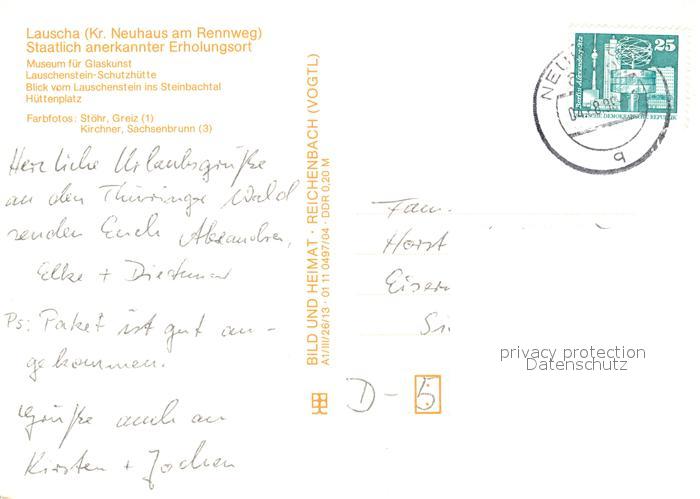 Lauscha (Kr. Neuhaus am Rennweg)
Staatlich anerkannter Erholungsort
Museum für Glaskunst
Lauschenstein-Schutzhütte
Blick vom Lauschenstein ins Steinbachtal
Hüttenplatz
Farbfotos: Stöhr, Greiz (1)
Kirchner, Sachsenbrunn (3)
Herzliche Urlaubsgrüße
an den Thüringe Wald
senden Euch Alexandra,
Elke + Dietmar
Ps: Paket ist gut an-
gekommen.
Grüße auch an
Kirsten + Jochen
BILD UND HEIMAT · REICHENBACH (VOGTL)
A1/III/26/13 · 01 11 0497/04 · DDR 0,20 M
25
Berlin, Alexanderplatz
DEUTSCHE DEMOKRATISCHE REPUBLIK
NEUH
a
Fam.
Horst
Eisen
Si
D - 5
privacy protection
Datenschutz